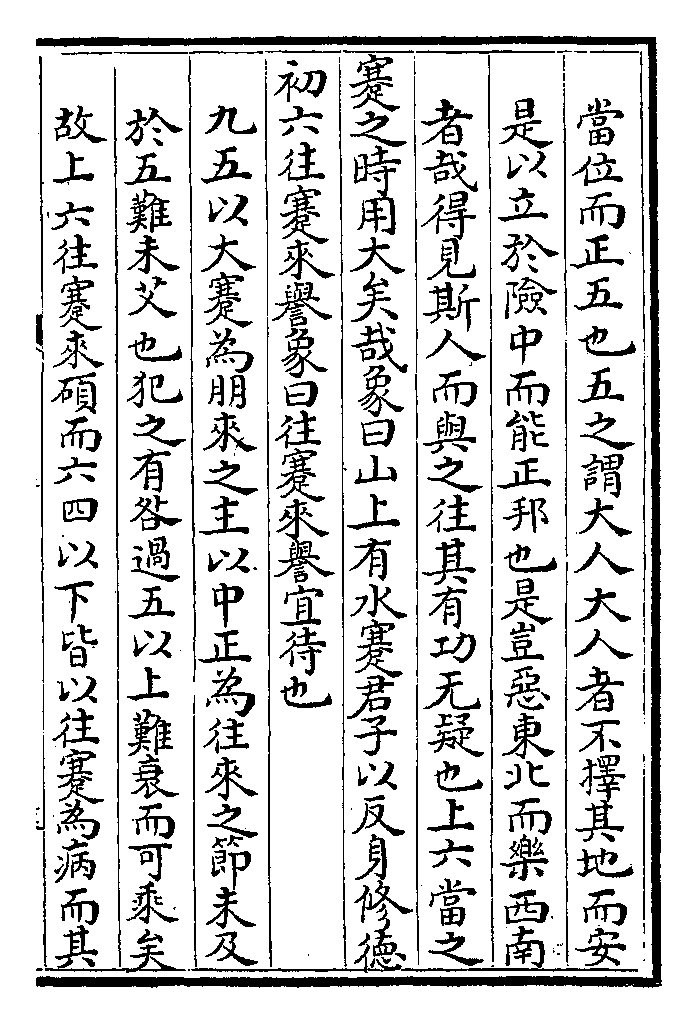 當位而正五也五之謂大人大人者不擇其地而安
是以立於險中而能正邦也是豈惡東北而樂西南
者哉得見斯人而與之往其有功无疑也上六當之
蹇之時用大矣哉象曰山上有水蹇君子以反身修德
初六往蹇來譽象曰往蹇來譽宜待也
九五以大蹇為朋來之主以中正為往來之節未及
於五難未艾也犯之有咎過五以上難衰而可乘矣
故上六往蹇來碩而六四以下皆以往蹇為病而其